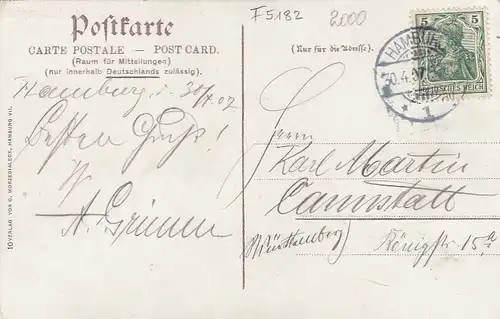 F5182
2000
Postkarte
CARTE POSTALE — POST CARD.
(Raum für Mitteilungen)
(nur innerhalb Deutschlands zulässig).
(Nur für die Adresse).
5 5
DEUTSCHES REICH
HAMBURG
30.4.07
* 1
Hamburg, d. 30/4.07
Besten Gruß!
A. Grimm
Herrn
Karl Martin
Cannstatt
(Württemberg)
Königstr. 15a
10 VERLAG VON G. WORZEDIALECK, HAMBURG VII.